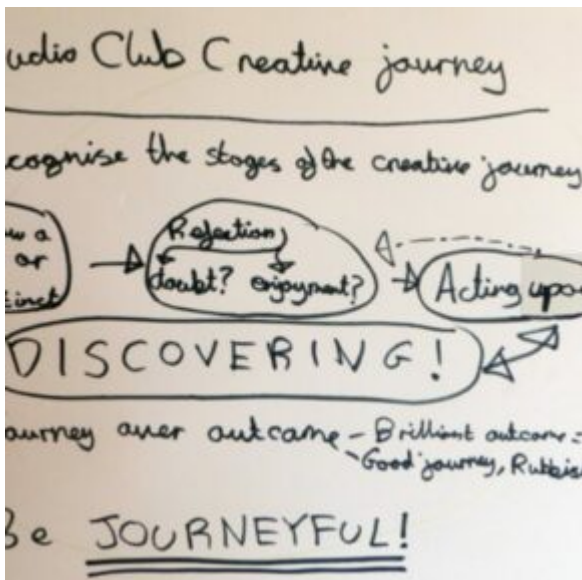 udio Club Creative journey
cognise the stages of the creative journey
w a
or
tinct
doubt? enjoyment?
Acting upo
DISCOVERING!
ourney over outcome - Brilliant outcome =
- Good journey, Rubbis
Be JOURNEYFUL!